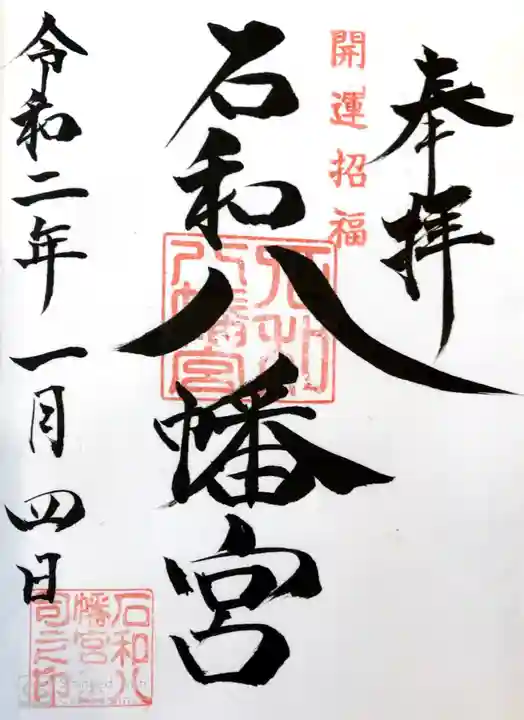 奉拝
開運招福
石和八幡宮
石和八幡宮
令和二年 一月 四日
石和八
幡宮
司之印